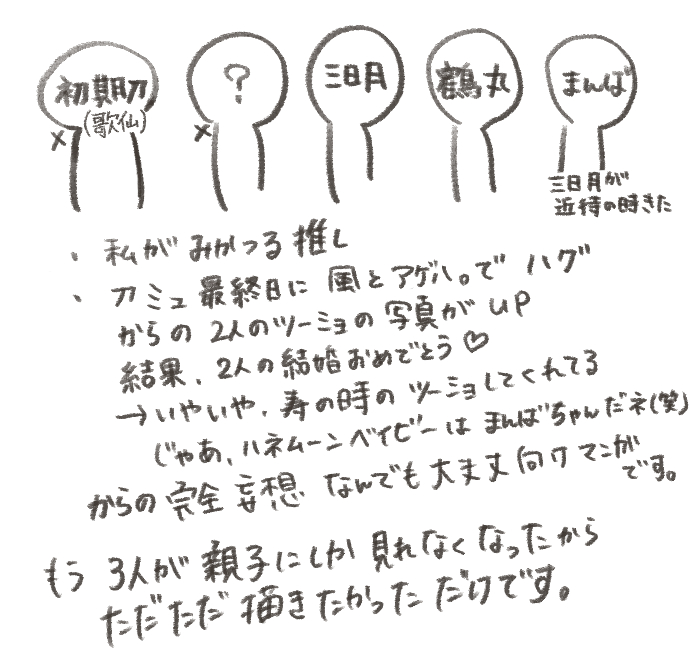 初期刀
(歌仙)
?
三日月
鶴丸
まんば
×
×
三日月が
近待の時きた
・私がみかつる推し
・刀ミュ最終日に風とアゲハ。でハグ
からの2人のツーショの写真がup
結果、2人の結婚おめでとう♡
→いやいや、寿の時のツーショしてくれてる
じゃあ、ハネムーンベイビーはまんばちゃんだネ(笑)
からの完全妄想なんでも大丈丈向けマンガ
です。
もう3人が親子にしか見れなくなったから
ただただ描きたかっただけです。